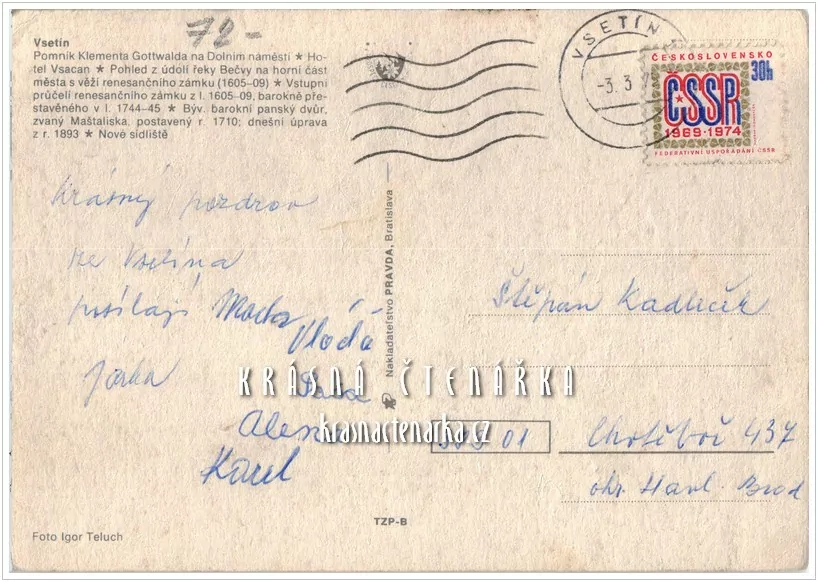 72-
Vsetín
Pomník Klementa Gottwalda na Dolním náměstí ★ Ho-
tel Vsacan ★ Pohled z údolí řeky Bečvy na horní část
města s věží renesančního zámku (1605–09) ★ Vstupní
průčelí renesančního zámku z l. 1605–09, barokně pře-
stavěného v l. 1744–45 ★ Býv. barokní panský dvůr,
zvaný Maštaliska, postavený r. 1710; dnešní úprava
z r. 1893 ★ Nové sídliště
VSETÍN
-3. 3
ČESKOSLOVENSKO
30h
ČSSR
1969-1974
FEDERATIVNÍ USPOŘÁDÁNÍ ČSSR
Krásný pozdrav
ze Vsetína
posílají
Vláďa
Jarka
Alena
Karel
Nakladatelství PRAVDA, Bratislava
Štěpán Kadleček
01
Chotěboř 437
okr. Havl. Brod
KRÁSNÁ ČTENÁŘKA
krasnactenarka.cz
TZP-B
Foto Igor Teluch